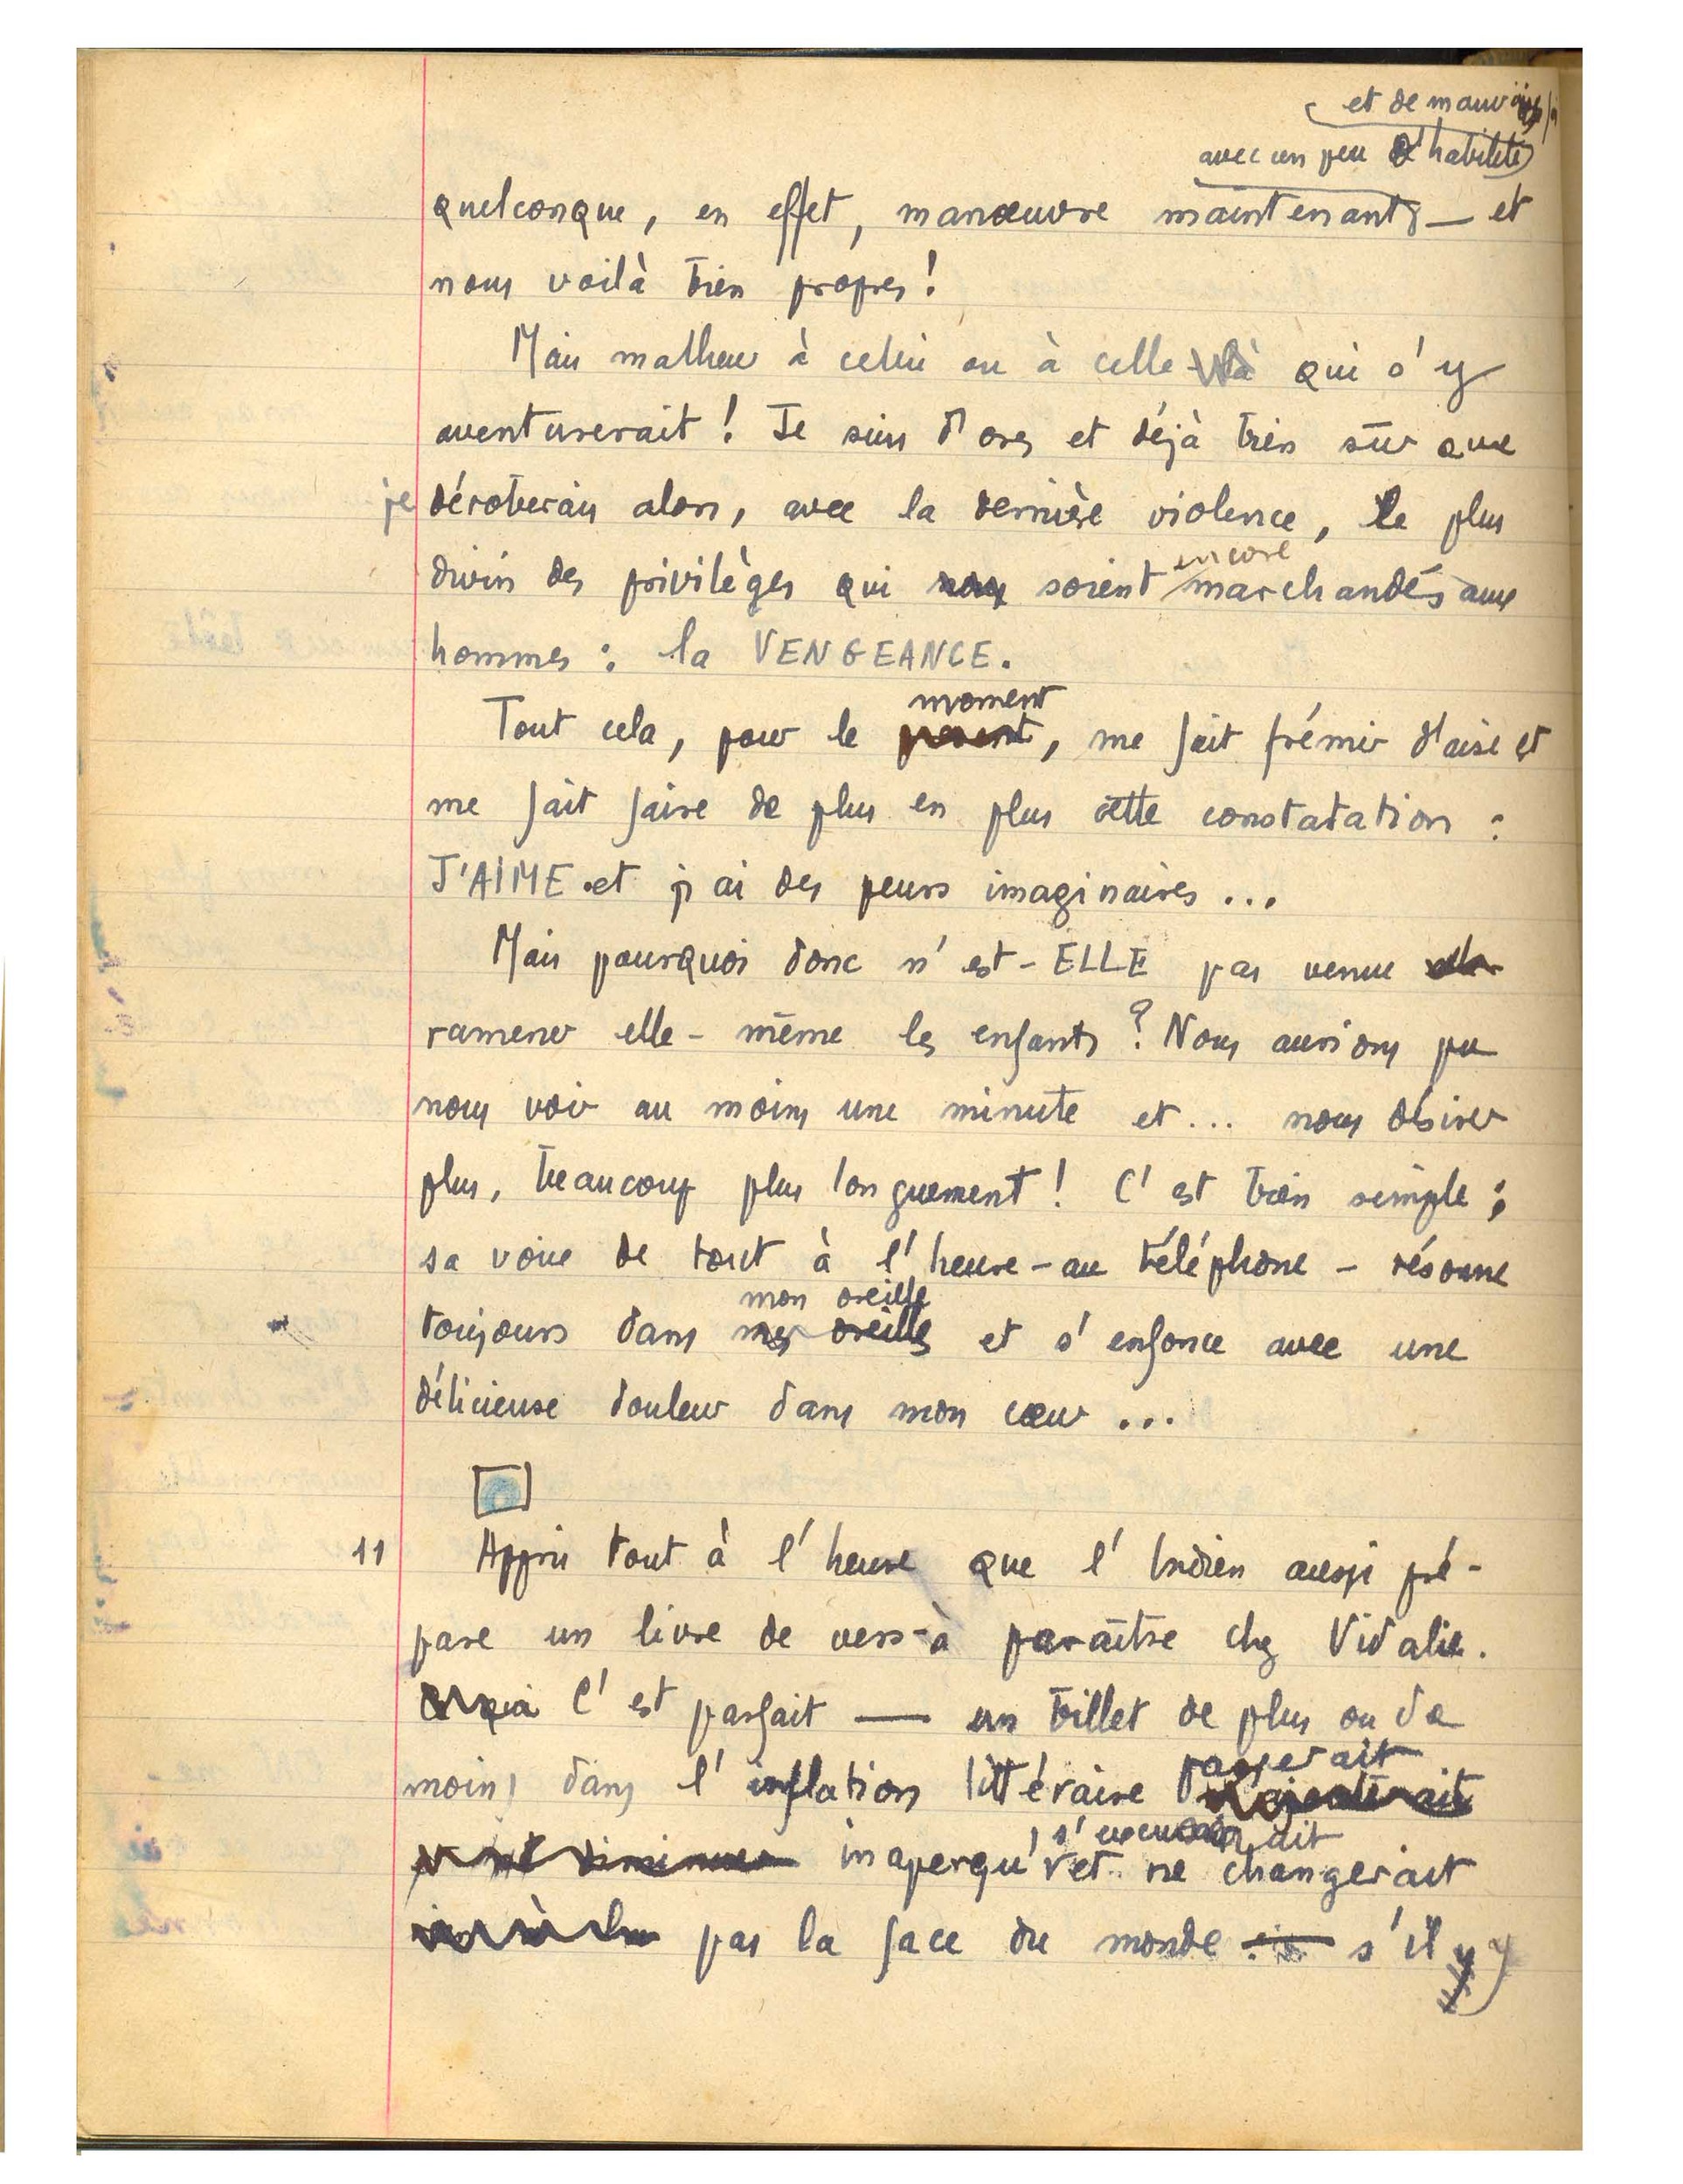 et de mauvaise
avec un peu d'habileté
quelconque, en effet, manœuvre maintenant, — et
nous voilà bien propres!
Mais malheur à celui ou à celle-là qui s'y
aventurerait! Je suis d'ores et déjà bien sûr que
je déroberais alors, avec la dernière violence, le plus
encore
divin des privilèges qui soient marchandés aux
hommes : la VENGEANCE.
moment
Tout cela, pour le present, me fait frémir d'aise et
me fait faire de plus en plus cette constatation :
J'AIME et j'ai des peurs imaginaires ...
Mais pourquoi donc n'est-ELLE pas venue
ramener elle-même les enfants? Nous aurions pu
nous voir au moins une minute et... nous désirer
plus, beaucoup plus longuement! C'est bien simple;
sa voix de tout à l'heure - au téléphone - résonne
mon oreille
toujours dans mes oreilles et s'enfonce avec une
délicieuse douleur dans mon cœur ...
11 Appris tout à l'heure que l'Indien aussi pré-
pare un livre de vers à paraître chez Vidalie.
C'est parfait — un billet de plus ou de
passerait
moins dans l'inflation littéraire
inaperçu et ne changerait
pas la face du monde s'il y